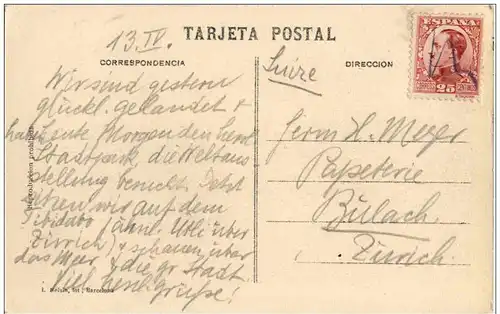 TARJETA POSTAL
13. IV.
CORRESPONDENCIA
DIRECCION
ESPAÑA
CORREOS 25 CENTIMOS
Suize
Wir sind gestern
glückl. gelandet &
heute Morgen den herrl.
Stadtpark, die Weltaus
stellung besucht. Jetzt
sitzen wir auf dem
Tibidabo (ähnl. Utli über
Zürich) & schauen über
das Meer & die gr. Stadt.
Viele herzl. Grüße!
Herrn H. Meyer
Papeterie
Bülach.
Zürich.
Reproducción prohibida
L. Roisin, fot., Barcelona